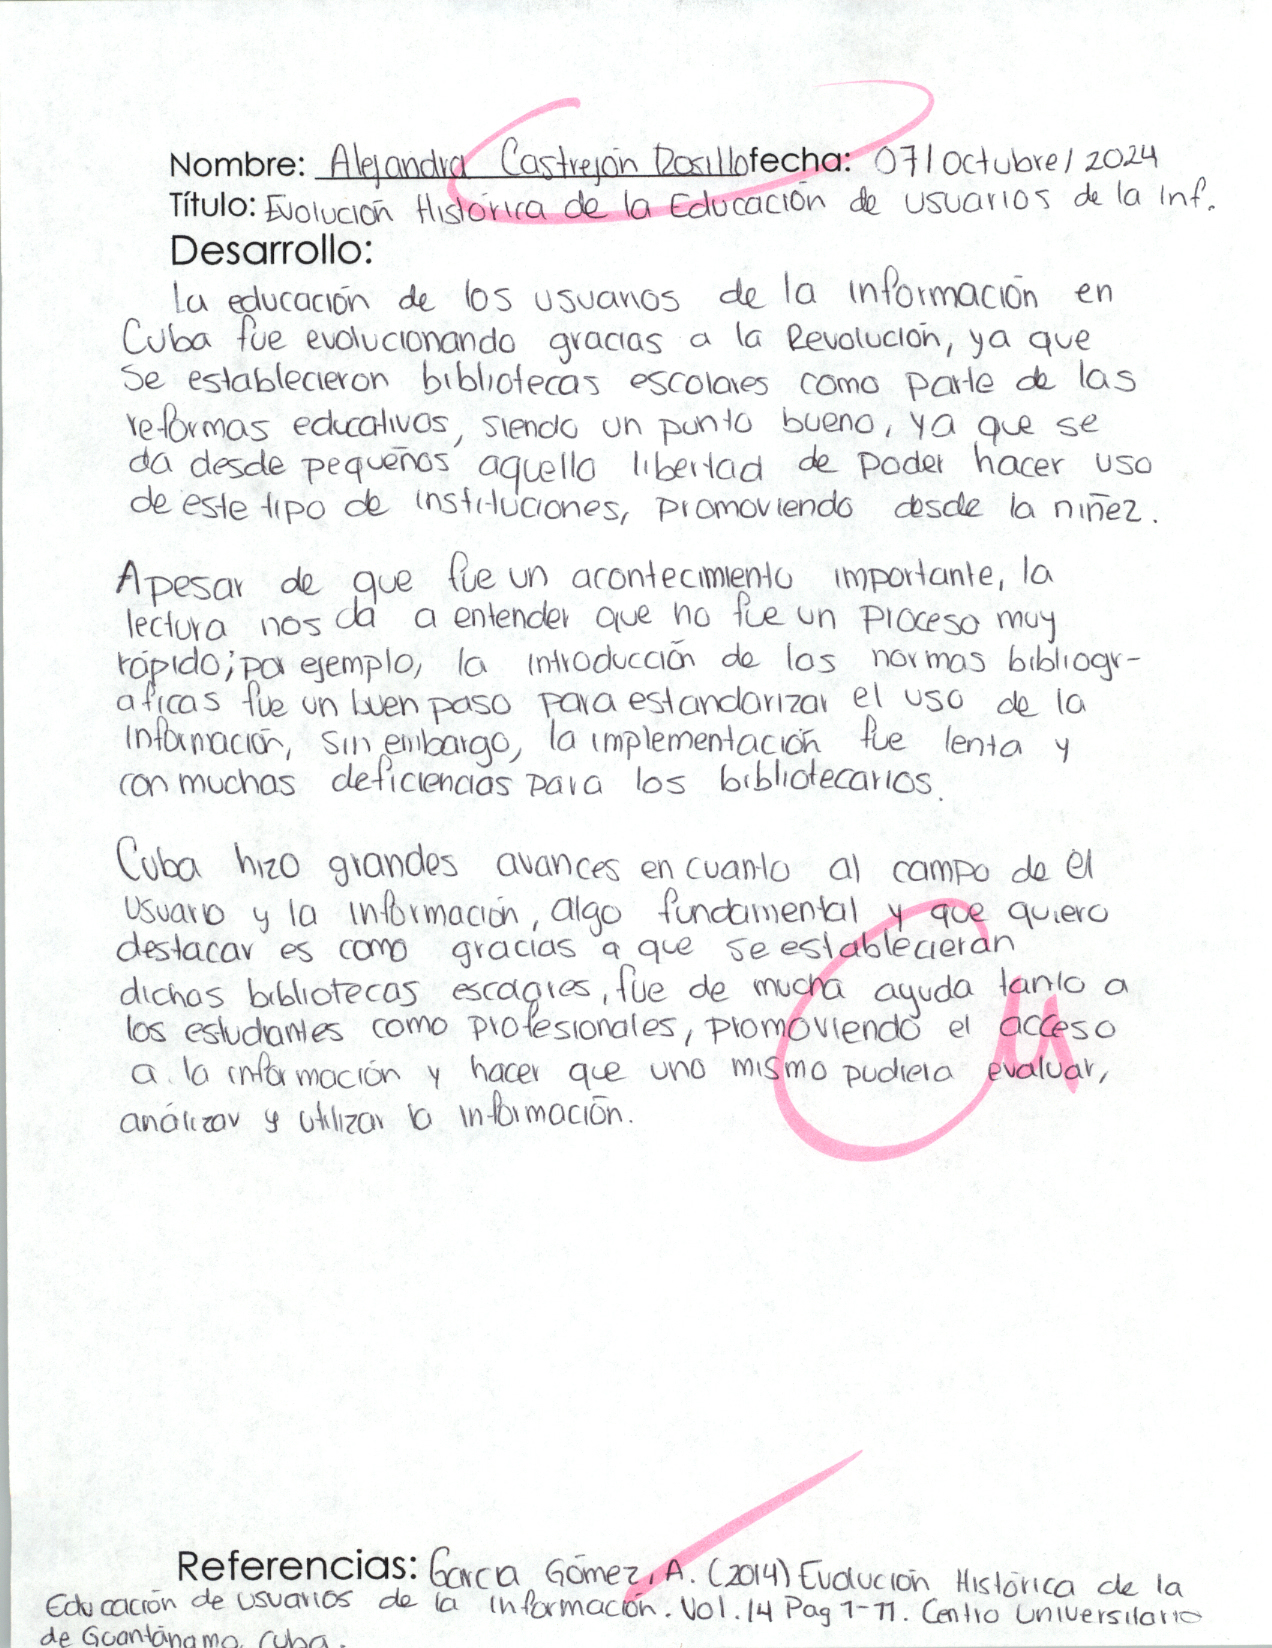 Nombre: Alejandra Castrejón Rosillo fecha: 07/Octubre/2024
Título: Evolución Histórica de la Educación de usuarios de la Inf.
Desarrollo:
La educación de los usuarios de la información en
Cuba fue evolucionando gracias a la Revolución, ya que
se establecieron bibliotecas escolares como parte de las
reformas educativas, siendo un punto bueno, ya que se
da desde pequeños aquella libertad de poder hacer uso
de este tipo de instituciones, promoviendo desde la niñez.
Apesar de que fue un acontecimiento importante, la
lectura nos da a entender que no fue un proceso muy
rápido; por ejemplo, la introducción de las normas bibliogr-
aficas fue un buen paso para estandarizar el uso de la
información, sin embargo, la implementación fue lenta y
con muchas deficiencias para los bibliotecarios.
Cuba hizo grandes avances en cuanto al campo de el
usuario y la información, algo fundamental y que quiero
destacar es como gracias a que se establecieran
dichas bibliotecas escolares, fue de mucha ayuda tanto a
los estudiantes como profesionales, promoviendo el acceso
a la información y hacer que uno mismo pudiera evaluar,
análizar y utilizar la información.
Referencias: García Gómez, A. (2014) Evolución Histórica de la
Educación de usuarios de la información. Vol. 14 Pag 1-11. Centro Universitario
de Guantánamo, Cuba.